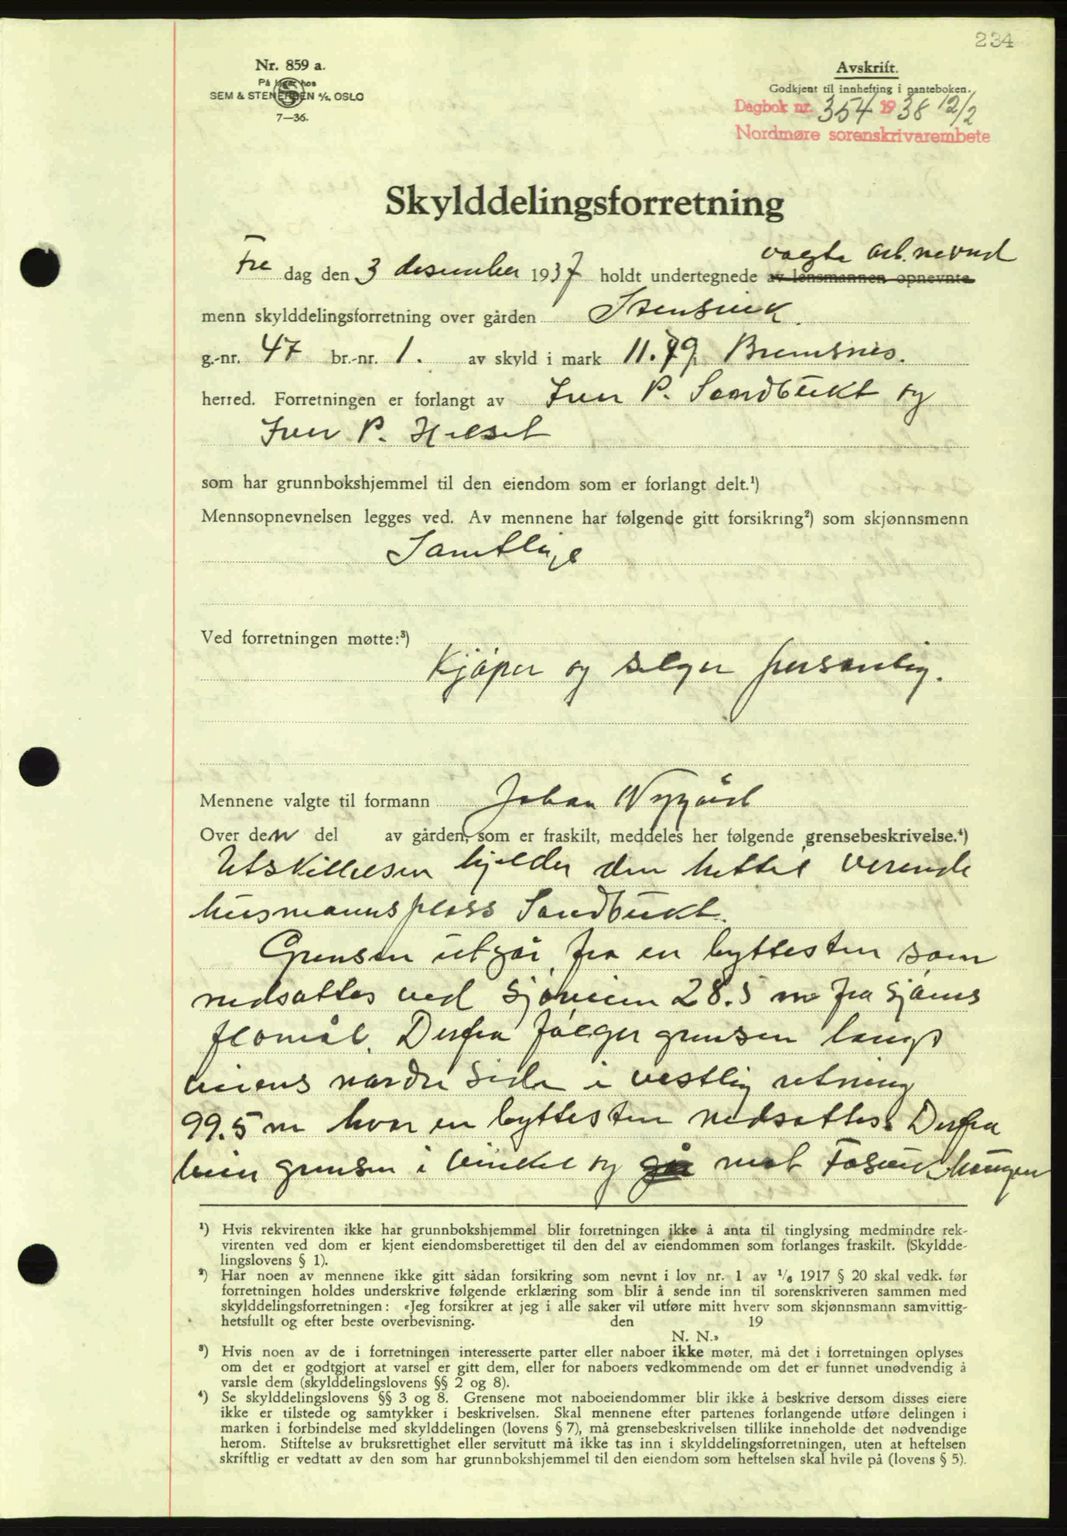 234
Nr. 859 a.
På lager hos
SEM & STENERSEN A/S, OSLO
7—36.
Avskrift.
Godkjent til innhefting i panteboken.
Dagbok nr. 354 1938 12/2
Nordmøre sorenskrivarembete
Skylddelingsforretning
valgte arb. nevnd
Fre dag den 3 desember 1937 holdt undertegnede av lensmannen opnevnte
menn skylddelingsforretning over gården Stensvik.
g.-nr. 47 br.-nr. 1. av skyld i mark 11.79 i Bremsnes.
herred. Forretningen er forlangt av Iver P. Sandbukt og
Iver P. Hilset
som har grunnbokshjemmel til den eiendom som er forlangt delt.¹)
Mennsopnevnelsen legges ved. Av mennene har følgende gitt forsikring²) som skjønnsmenn
Samtlige
Ved forretningen møtte:³)
Kjøper og selger personlig.
Mennene valgte til formann Johan Nygård
Over den del av gården, som er fraskilt, meddeles her følgende grensebeskrivelse.⁴)
Utskillelsen gjelder den hittil verende
husmannsplass Sandbukt.
Grensen utgår fra en byttesten som
nedsattes ved sjøveien 28.5 m fra sjøens
flomål. Derfra følger grensen langs
veiens nordre side i vestlig retning
99.5 m hvor en byttesten nedsattes. Derfra
beier grensen i vinkel og går mot haugen
¹) Hvis rekvirenten ikke har grunnbokshjemmel blir forretningen ikke å anta til tinglysing medmindre rek-
virenten ved dom er kjent eiendomsberettiget til den del av eiendommen som forlanges fraskilt. (Skyldde-
lingslovens § 1).
²) Har noen av mennene ikke gitt sådan forsikring som nevnt i lov nr. 1 av 1/6 1917 § 20 skal vedk. før
forretningen holdes underskrive følgende erklæring som blir å sende inn til sorenskriveren sammen med
skylddelingsforretningen: «Jeg forsikrer at jeg i alle saker vil utføre mitt hverv som skjønnsmann samvittig-
hetsfullt og efter beste overbevisning. den 19
N. N.»
³) Hvis noen av de i forretningen interesserte parter eller naboer ikke møter, må det i forretningen oplyses
om det er godtgjort at varsel er gitt dem, eller for naboers vedkommende om det er funnet unødvendig å
varsle dem (skylddelingslovens §§ 2 og 8).
⁴) Se skylddelingslovens §§ 3 og 8. Grensene mot naboeiendommer blir ikke å beskrive dersom disses eiere
ikke er tilstede og samtykker i beskrivelsen. Skal mennene efter partenes forlangende utføre delingen i
marken i forbindelse med skylddelingen (lovens § 7), må grensebeskrivelsen tillike inneholde det nødvendige
herom. Stiftelse av bruksrettighet eller servitutt må ikke tas inn i skylddelingsforretningen, uten at heftelsen
skriftlig er vedtatt av den som har grunnbokshjemmel til den eiendom som heftelsen skal hvile på (lovens § 5).